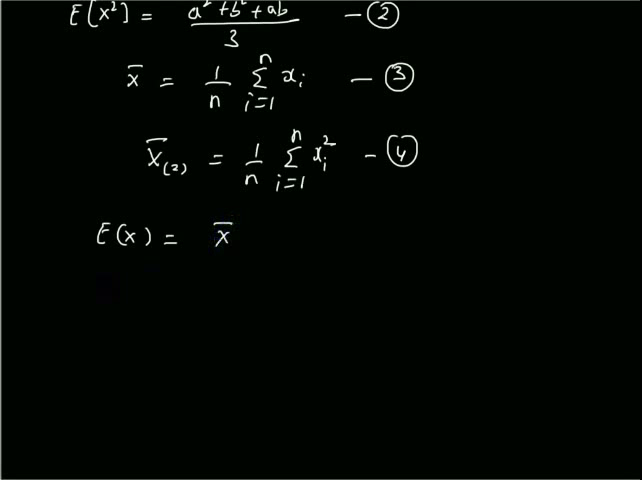 E[X²] = (a² + b² + ab)/3 — ②
x̄ = 1/n Σ_{i=1}^{n} x_i — ③
X̄_(2) = 1/n Σ_{i=1}^{n} x_i² — ④
E(x) = x̄